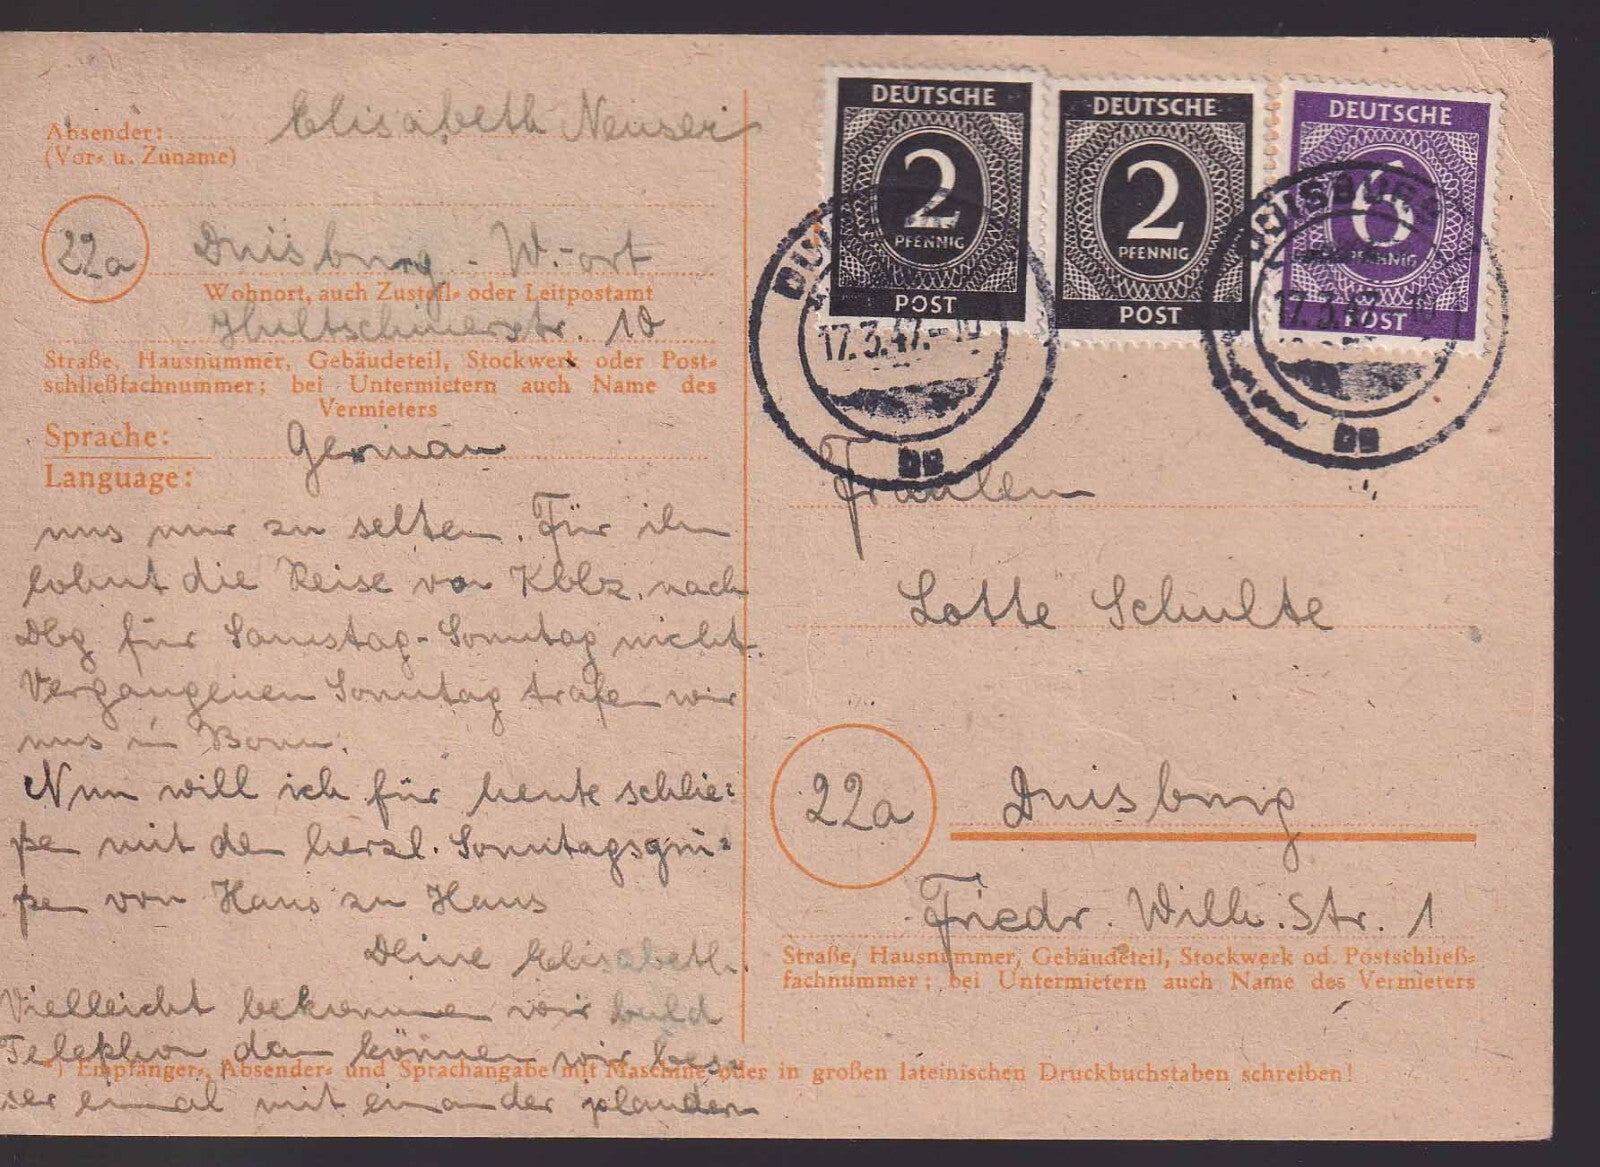 Absender:
(Vor- u. Zuname)
Elisabeth Neuser
22a
Duisburg - W.-ort
Wohnort, auch Zustell- oder Leitpostamt
Hultschinerstr. 10
Straße, Hausnummer, Gebäudeteil, Stockwerk oder Post-
schließfachnummer; bei Untermietern auch Name des
Vermieters
Sprache:
Language:
German
uns nur zu selten. Für ihn
lohnt die Reise von Kblz. nach
Dbg für Samstag-Sonntag nicht.
Vergangenen Sonntag trafen wir
uns in Bonn.
Nun will ich für heute schlie-
ßen mit den herzl. Sonntagsgrü-
ßen von Haus zu Haus
Deine Elisabeth.
Vielleicht bekommen wir bald
Telephon dann können wir bes-
ser einmal mit einander plaudern
DEUTSCHE
2
PFENNIG
POST
DEUTSCHE
2
PFENNIG
POST
DEUTSCHE
6
PFENNIG
POST
17.3.47.-10
DUISBURG
17.3.47.-10
Fräulein
Lotte Schulte
22a
Duisburg
Friedr. Wilh. Str. 1
Straße, Hausnummer, Gebäudeteil, Stockwerk od. Postschließ-
fachnummer; bei Untermietern auch Name des Vermieters
*) Empfänger-, Absender- und Sprachangabe mit Maschine oder in großen lateinischen Druckbuchstaben schreiben!